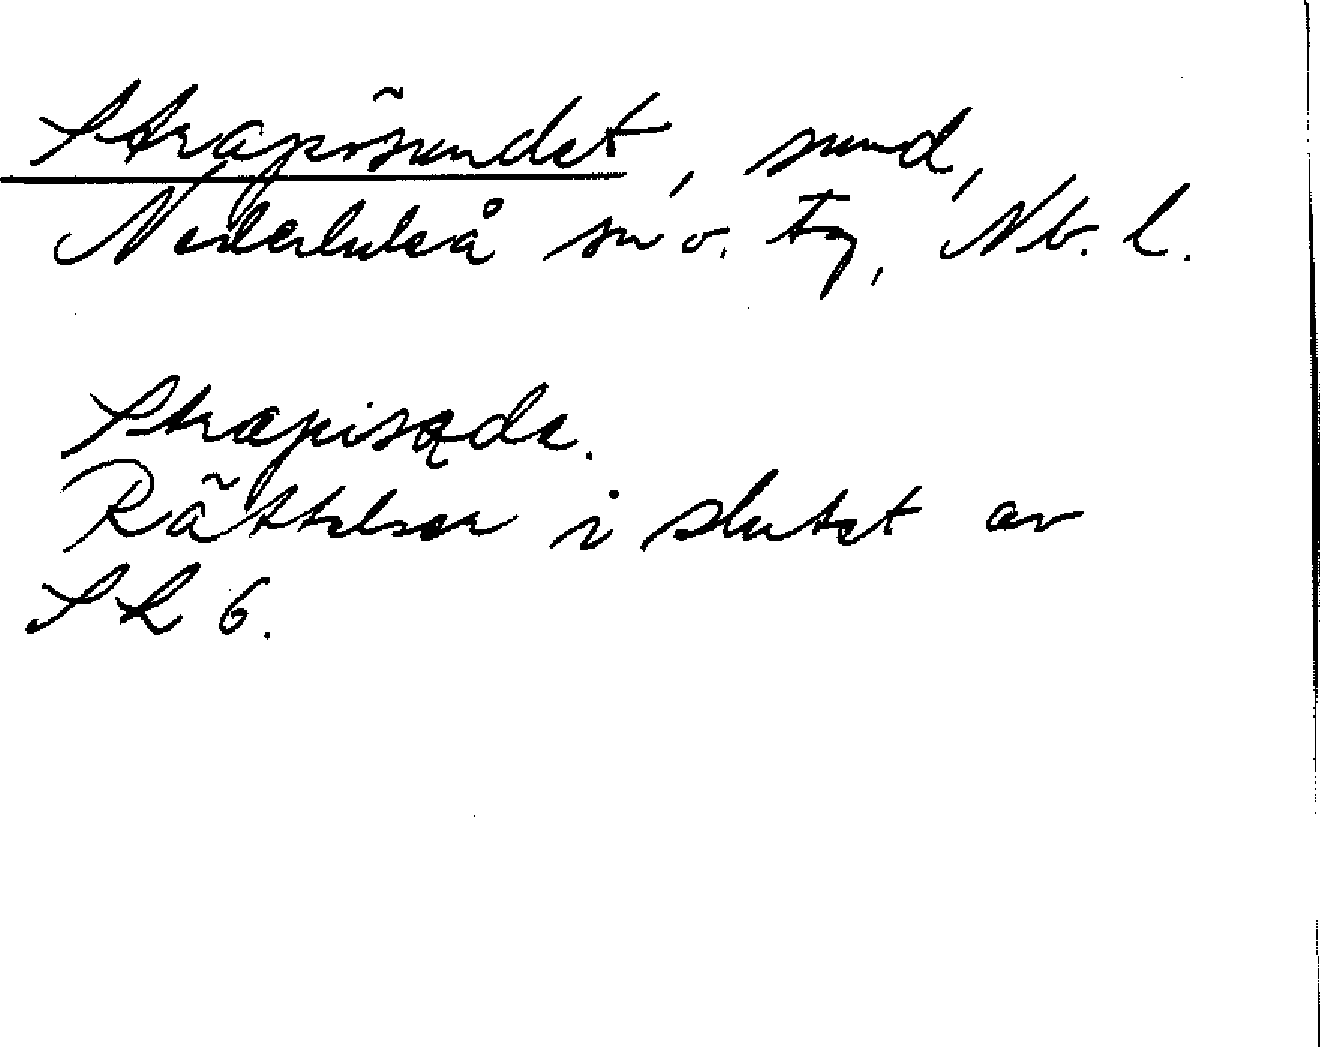 Strapösundet, sund,
Nederluleå sn o. tg, Nb. l.
Rättelser i slutet av
SR 6.